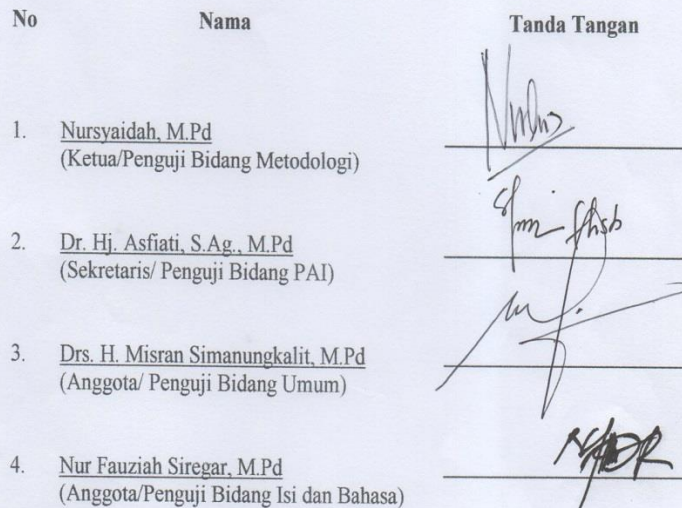 No Nama Tanda Tangan
1. Nursyaidah, M.Pd
(Ketua/Penguji Bidang Metodologi)
2. Dr. Hj. Asfiati, S.Ag., M.Pd
(Sekretaris/ Penguji Bidang PAI)
3. Drs. H. Misran Simanungkalit, M.Pd
(Anggota/ Penguji Bidang Umum)
4. Nur Fauziah Siregar, M.Pd
(Anggota/Penguji Bidang Isi dan Bahasa)